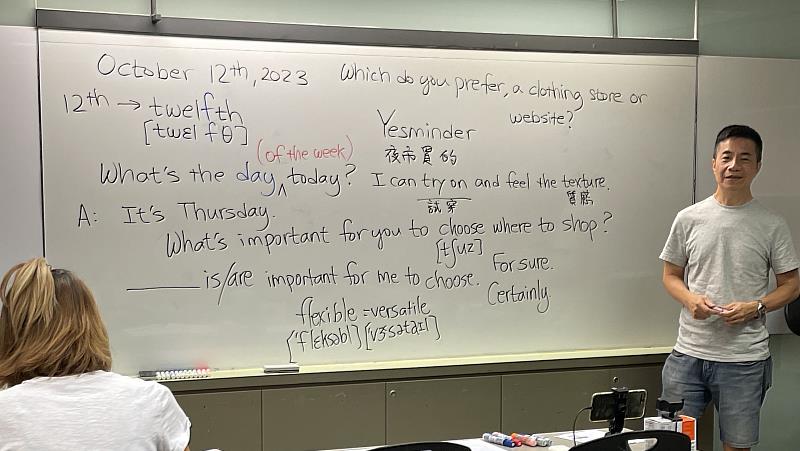 October 12th, 2023
Which do you prefer, a clothing store or
website?
12th → twelfth
[twɛlfθ]
Yesminder
夜市買的
(of the week)
What's the day ^ today?
I can try on and feel the texture.
試穿
質感
A: It's Thursday.
What's important for you to choose where to shop?
[tʃuz]
____ is/are important for me to choose.
For sure.
Certainly.
flexible = versatile
['flɛksəbl] [vɝsətaɪl]